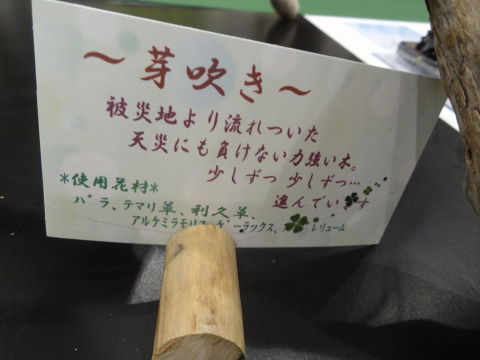 ～芽吹き～
被災地より流れついた
天災にも負けない力強い木。
少しずつ 少しずつ…
進んでいます
*使用花材*
バラ、テマリ草、利久草、
アルケミラモリス、ゲーラックス、
レリューム